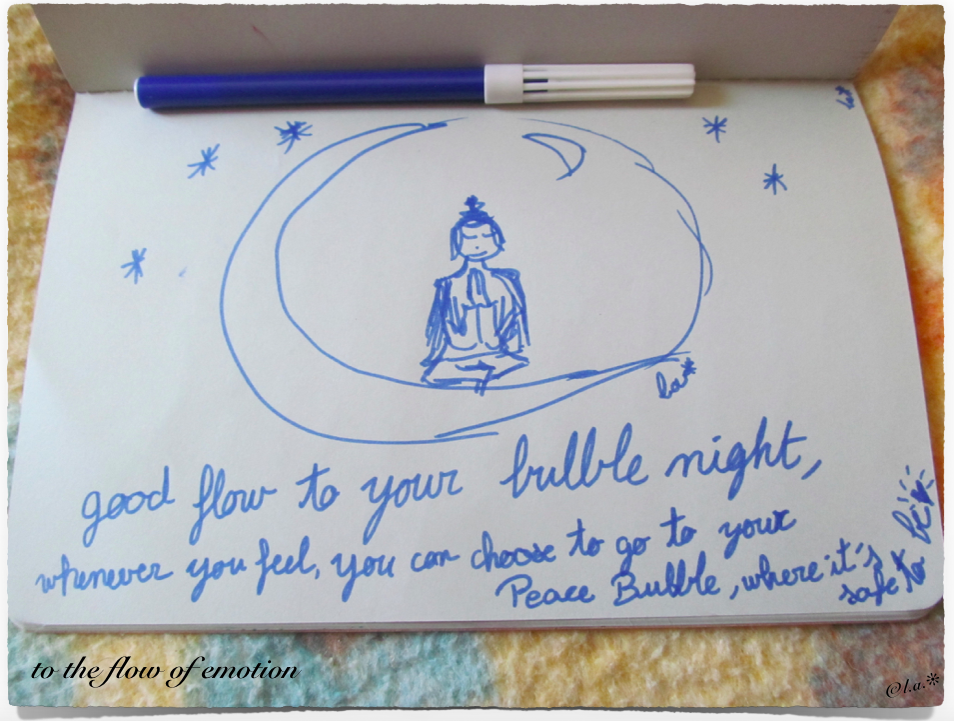 la*
good flow to your bubble night,
whenever you feel, you can choose to go to your
Peace Bubble, where it's
safe to be*
to the flow of emotion
@l.a.*